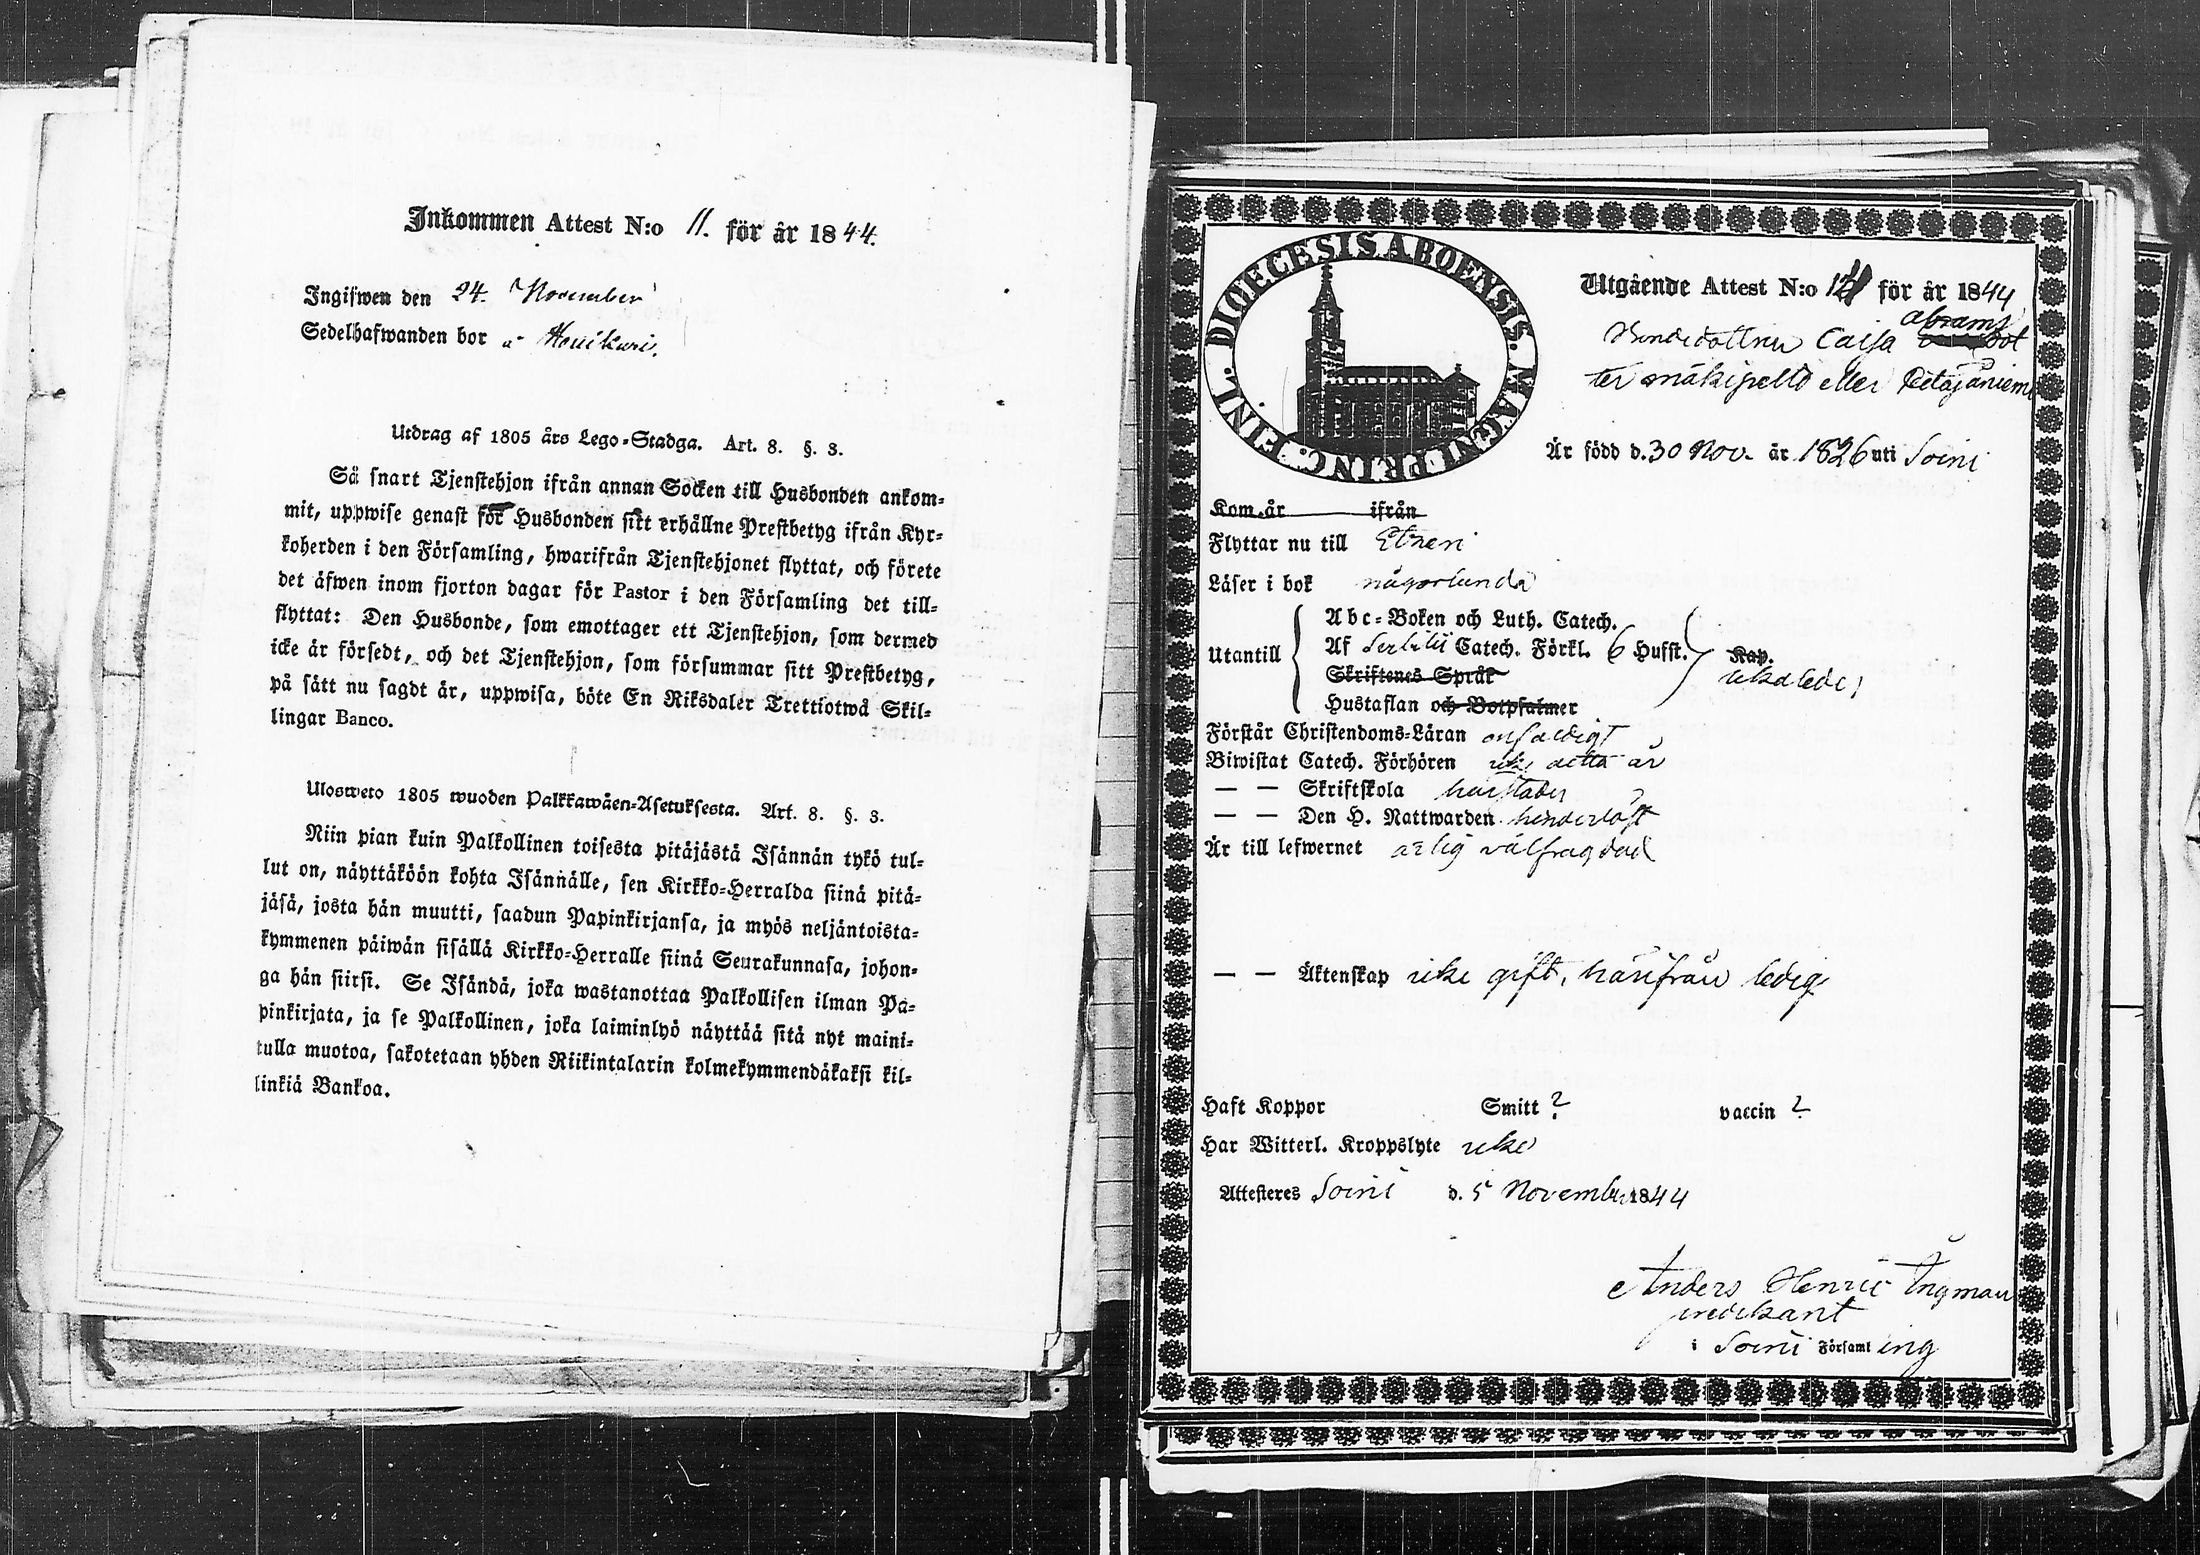 Inkommen Attest N:o 11. för år 1844.
Ingifwen den 24. November
Sedelhafwanden bor å
Utdrag af 1805 års Lego-Stadga. Art. 8. §. 3.
Så snart Tjenstehjon ifrån annan Socken till Husbonden ankom-
mit, uppwise genast för Husbonden sitt erhållne Prestbetyg ifrån Kyr-
koherden i den Församling, hwarifrån Tjenstehjonet flyttat, och förete
det äfwen inom fjorton dagar för Pastor i den Församling det till-
flyttat: Den Husbonde, som emottager ett Tjenstehjon, som dermed
icke är försedt, och det Tjenstehjon, som försummar sitt Prestbetyg,
på sätt nu sagdt är, uppwisa, böte En Riksdaler Trettiotwå Skil-
lingar Banco.
Ulosweto 1805 wuoden Palkkawäen-Asetuksesta. Art. 8. §. 3.
Niin pian kuin Palkollinen toisesta pitäjästä Isännän tykö tul-
lut on, näyttäköön kohta Isännälle, sen Kirkko-Herralda siinä pitä-
jäsä, josta hän muutti, saadun Papinkirjansa, ja myös neljäntoista-
kymmenen päiwän sisällä Kirkko-Herralle siinä Seurakunnasa, johon-
ga hän siirsi. Se Isändä, joka wastanottaa Palkollisen ilman Pa-
pinkirjata, ja se Palkollinen, joka laiminlyö näyttää sitä nyt maini-
tulla muotoa, sakotetaan yhden Riikintalarin kolmekymmendäkaksi kil-
linkiä Bankoa.
DIOECESIS ABOENSIS. MAGNI PRINC. FINL.
Utgående Attest N:o för år 1844
Abrams
Bondedottren Caisa dot
ter mäkipelto eller
Är född d. 30 Nov. år 1826 uti Soini
Kom år ifrån
Flyttar nu till Etzeri
Läser i bok någorlunda
Utantill
Abc-Boken och Luth. Catech.
Af Catech. Förkl. 6 Hufst. Kap.
Skriftenes Språk
Hustaflan och Botpsalmer
Förstår Christendoms-Läran enfaldigt
Biwistat Catech. Förhören icke detta år
— — Skriftskola
— — Den H. Nattwarden
Är till lefwernet ärlig välfrägdad
— — Äktenskap icke gift, härifrån ledig
Haft Koppor Smitt ? vaccin ?
Har Witterl. Kroppslyte icke
Attesteres Soini d. 5 November 1844
Anders Henric Ingman
predikant
i Soini Församling